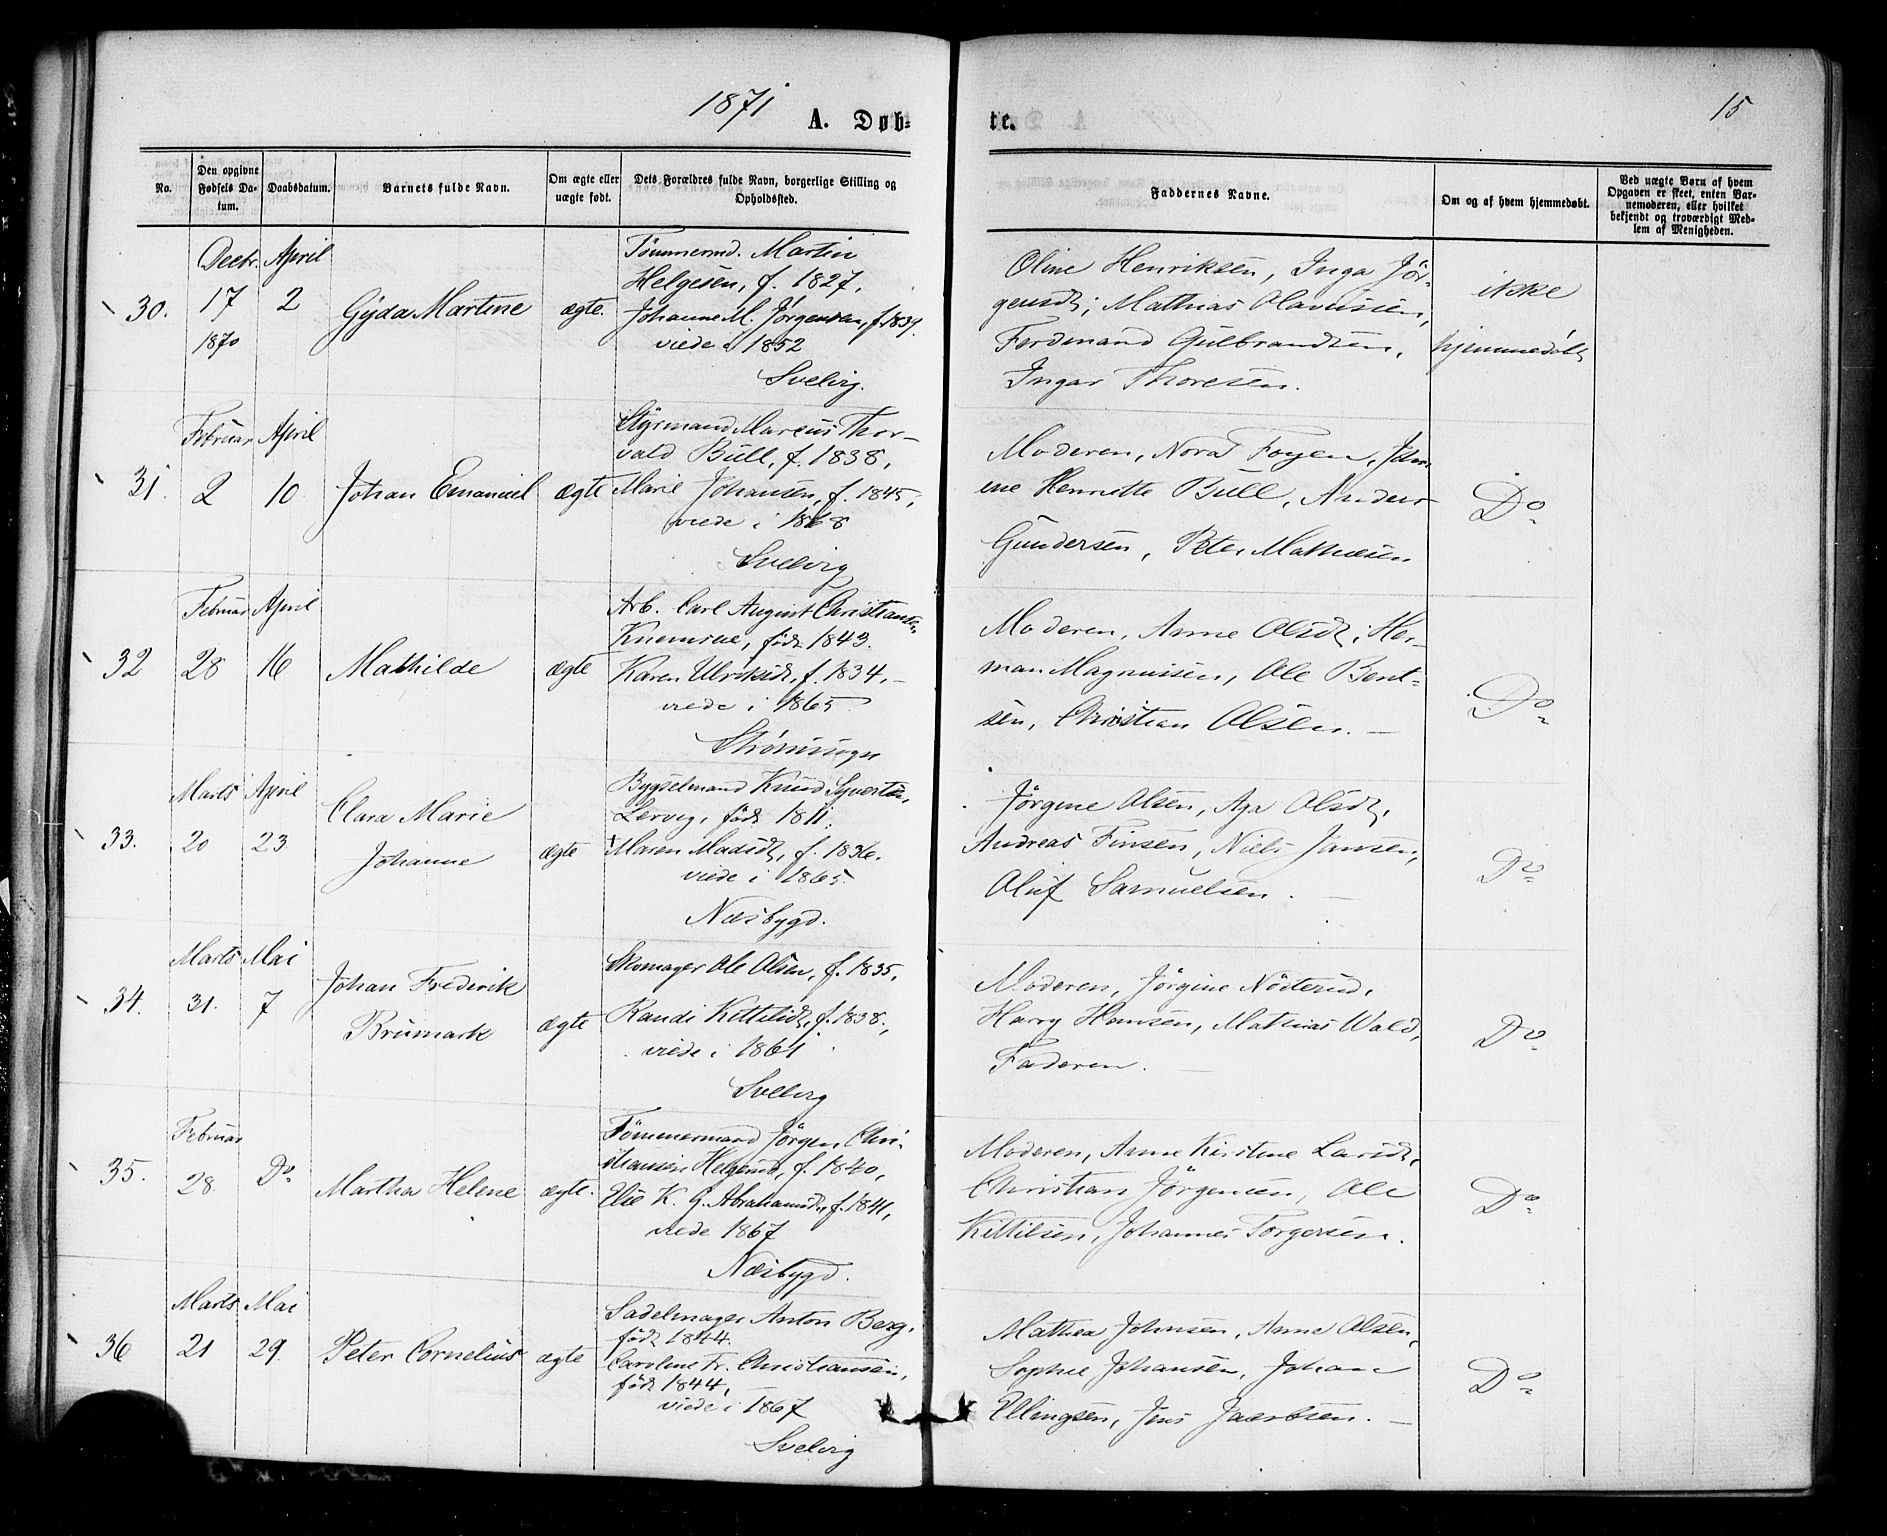 1871
15
A. Døb-
te.
No.
Den opgivne
Fødsels Da-
tum.
Daabsdatum.
Barnets fulde Navn.
Om ægte eller
uægte født.
Dets Forældres fulde Navn, borgerlige Stilling og
Opholdssted.
Faddernes Navne.
Om og af hvem hjemmedøbt.
Ved uægte Børn af hvem
Opgaven er skeet, enten Bar-
nemoderen, eller hvilket
bekjendt og troværdigt Med-
lem af Menigheden.
30.
Decbr.
17
1870
April
2
Gyda Martine
ægte.
Tømmermd. Martin
Helgesen, f. 1827,
Johanne M. Jørgensen, f. 1839.
viede 1852
Svelvig.
Oline Henriksen, Inga Jør-
gensdt, Mathias Olavesen,
Ferdinand Gulbrandsen,
Ingar Thoresen.
ikke
hjemmedøbt
31.
Februar
2
April
10
Johan Emanuel
ægte
Styrmand Marcus Thor-
vald Bull, f. 1838,
Marie Johansen, f. 1845,
viede i 1868
Svelvig
Moderen, Nora Foyen, Jan-
ine Henriette Bull, Anders
Gundersen, Peter Mathiesen
Do
32
Februar
28
April
16
Mathilde
ægte
Arb. Carl August Christiansen
født 1843.
Karen Ulriksdt, f. 1834,
viede i 1865
Strømsogn
Moderen, Anne Olsdt, Her-
man Magnussen, Ole Bent-
sen, Christian Olsen.
Do
33.
Marts
20
April
23
Clara Marie
Johanne
ægte
Bygselmand Knud Syvertsen,
Lervig, født 1811.
Maren Madsdt, f. 1836.
viede i 1865.
Næsbygd.
Jørgine Olsen, Aga Olsdt,
Andreas Finsen, Niels Jansen,
Oluf Samuelsen.
Do
34.
Marts
31.
Mai
7
Johan Fredirik
Brumark
ægte
Skomager Ole Olsen, f. 1835,
Randi Kittilsdt, f. 1838,
viede i 1861
Svelvig
Moderen, Jørgine Nøsterud,
Harry Hansen, Mathias Wald,
Faderen.
Do
35.
Februar
28
Do
Martha Helene
ægte.
Tømmermand Jørgen Chri-
stiansen Helgerud, f. 1840,
Elie K. G. Abrahamsdt, f. 1841,
viede 1867
Næsbygd.
Moderen, Anne Kirstine Larsdt,
Christian Jørgensen, Ole
Kittilsen, Johannes Torgersen.
Do
36
Marts
21
Mai
29
Peter Cornelius
ægte
Sadelmager Anton Berg,
født 1844.
Caroline Fr. Christiansen,
født 1844,
viede i 1867
Svelvig
Mathea Johnsen, Anne Olsen,
Sophie Johansen, Johan
Ellingsen, Jens Jacobsen.
Do